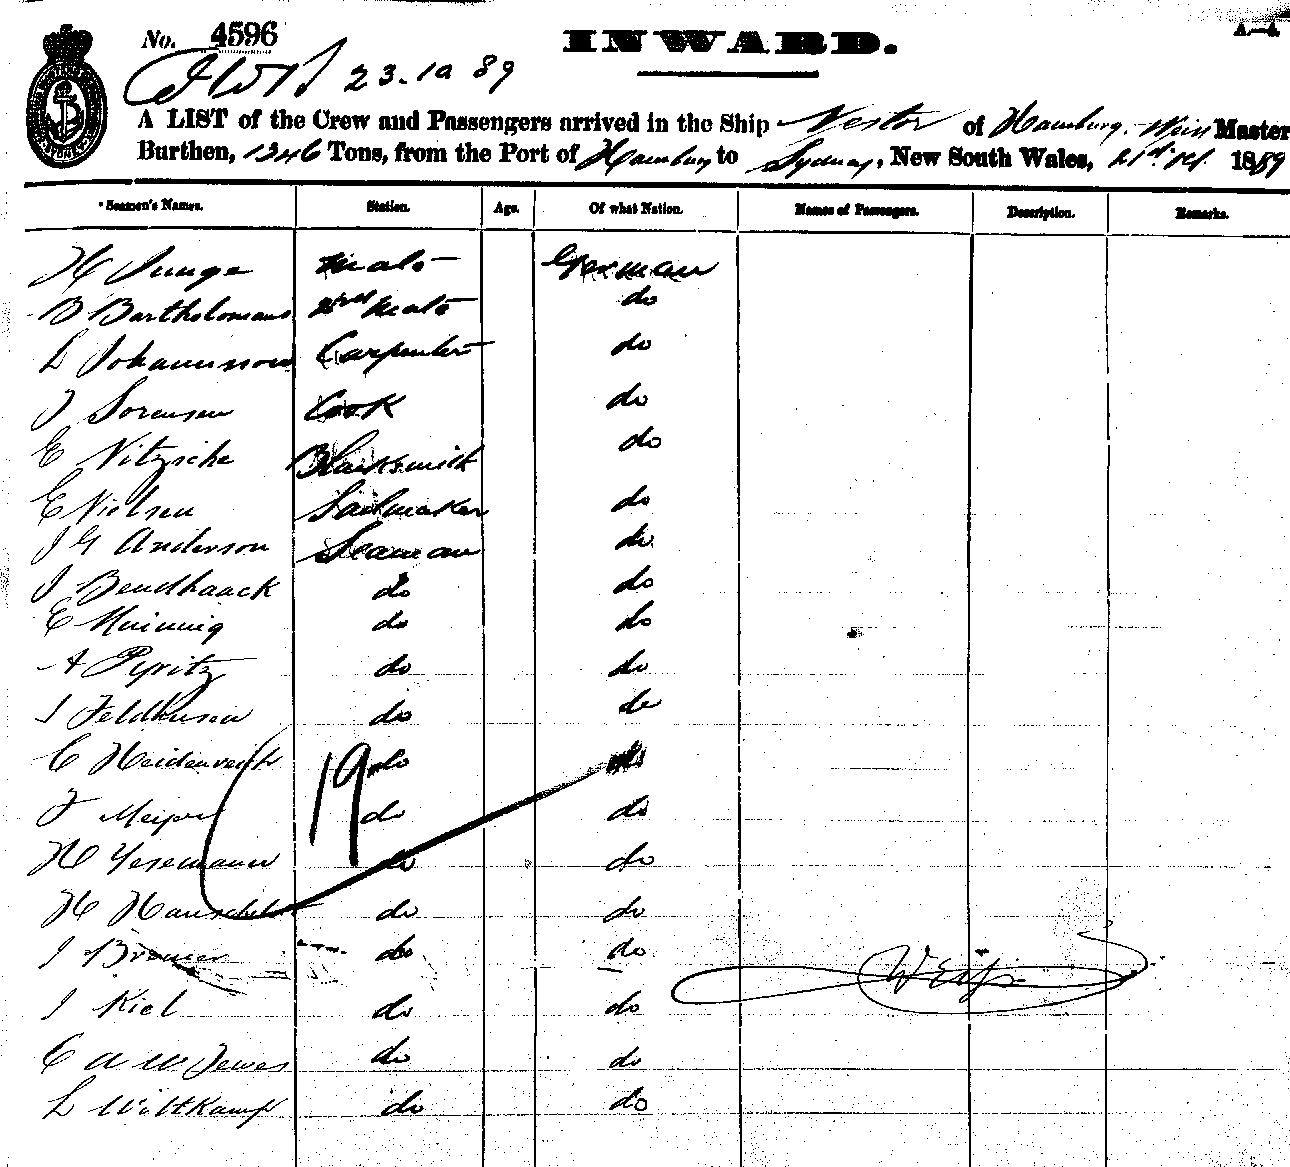 No. 4596
INWARD.
A.—4.
23.10 89
A LIST of the Crew and Passengers arrived in the Ship Nestor of Hamburg, Master
Burthen, 1346 Tons, from the Port of Hamburg to Sydney, New South Wales, 21st Oct. 1889
Seamen's Names. Station. Age. Of what Nation. Names of Passengers. Description. Remarks.
H Junge Mate German
B Bartholomaus 2nd Mate do
L Johannson Carpenter do
J Sorensen Cook do
E Nitzsche Blacksmith do
E Nielsen Sailmaker do
J G Anderson Seaman do
J Bendhaack do do
E do do
A Pyritz do do
J Feldhusen do do
C Heidenreich do do
F Meijer do do
H Yesemann do do
H do do
J Bremer do do
J Kiel do do
C A W Jewes do do
L Wittkamp do do
19